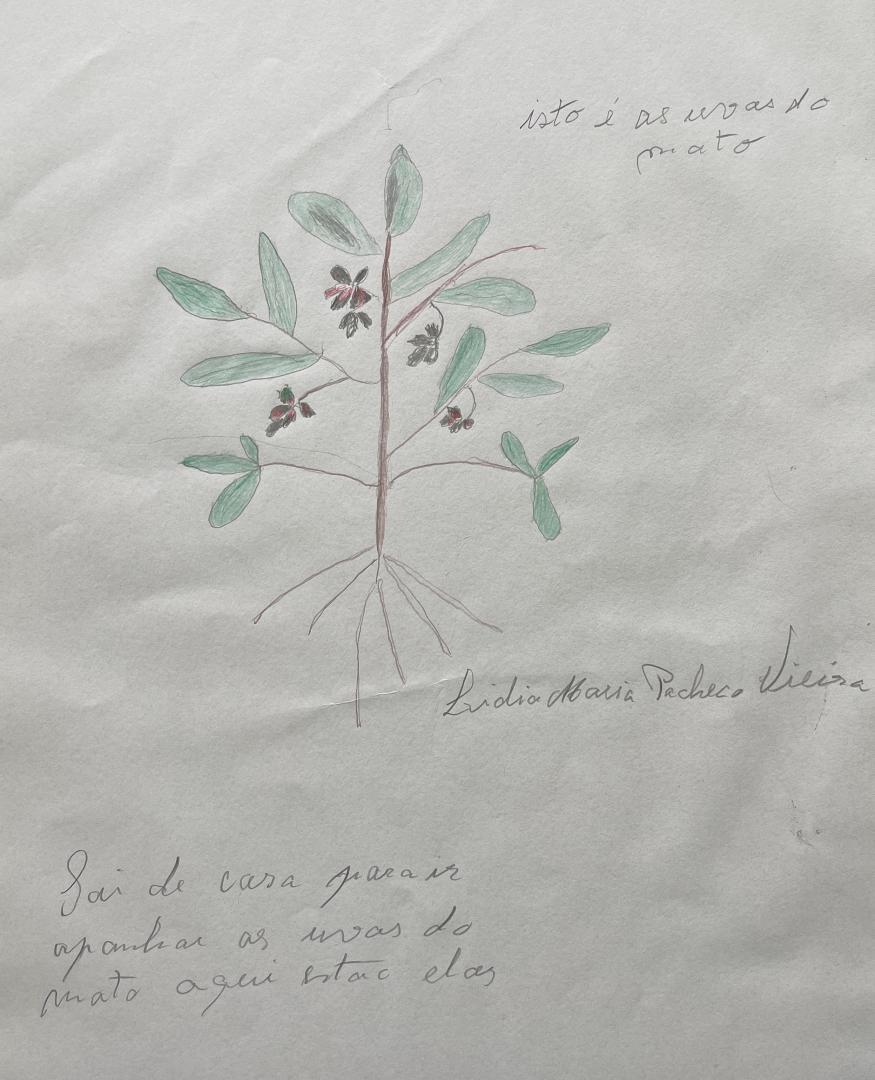 isto é as uvas do
mato
Lidia Maria Pacheco Vieira
Sai de casa para ir
apanhar as uvas do
mato aqui estao elas